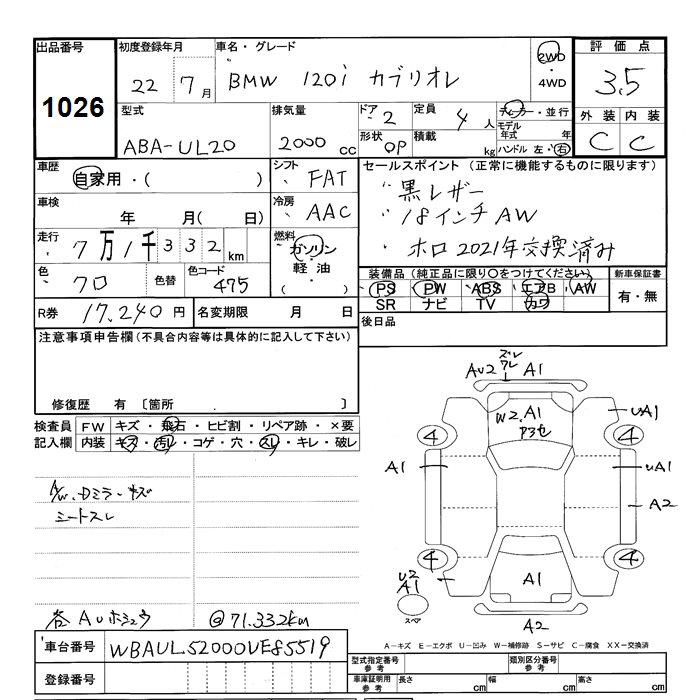 出品番号 初度登録年月 車名・グレード 2WD 評価点
1026 22 7月 BMW 120i カブリオレ ・4WD 3.5
型式 排気量 ドア 2 定員 4人 ディーラー・並行 外装 内装
ABA-UL20 2000cc 形状 OP 積載 kg モデル年式 年 ハンドル 左・右 C C
車歴 自家用・( ) シフト FAT セールスポイント (正常に機能するものに限ります)
車検 年 月( 日) 冷房 AAC 黒レザー
18インチAW
走行 7万1千332km 燃料 ガソリン・軽油・( ) ホロ2021年交換済み
色 クロ 色替 色コード 475 装備品(純正品に限り○をつけてください) 新車保証書
PS PW ABS エアB AW 有・無
SR ナビ TV カワ
R券 17,240円 名変期限 月 日 後日品
注意事項申告欄(不具合内容等は具体的に記入して下さい)
修復歴 有 〔箇所 〕
検査員 FW キズ・飛石・ヒビ割・リペア跡・×要
記入欄 内装 キズ・汚レ・コゲ・穴・スレ・キレ・破レ
A/W、Dミラーキズ
シートスレ
各AUホシュウ @71.332km
ズレ
ワレ
AU2 A1
W2 A1
4 4 UA1
A1 UA1
A2
4 4
U2
A1 A1
スペア A2
A-キズ E-エクボ U-凹み W-補修跡 S-サビ C-腐食 XX-交換済
車台番号 WBAUL52000VE85519
登録番号
型式指定番号 参考 類別区分番号 参考
車庫証明用 参考 長さ cm 幅 cm 高さ cm